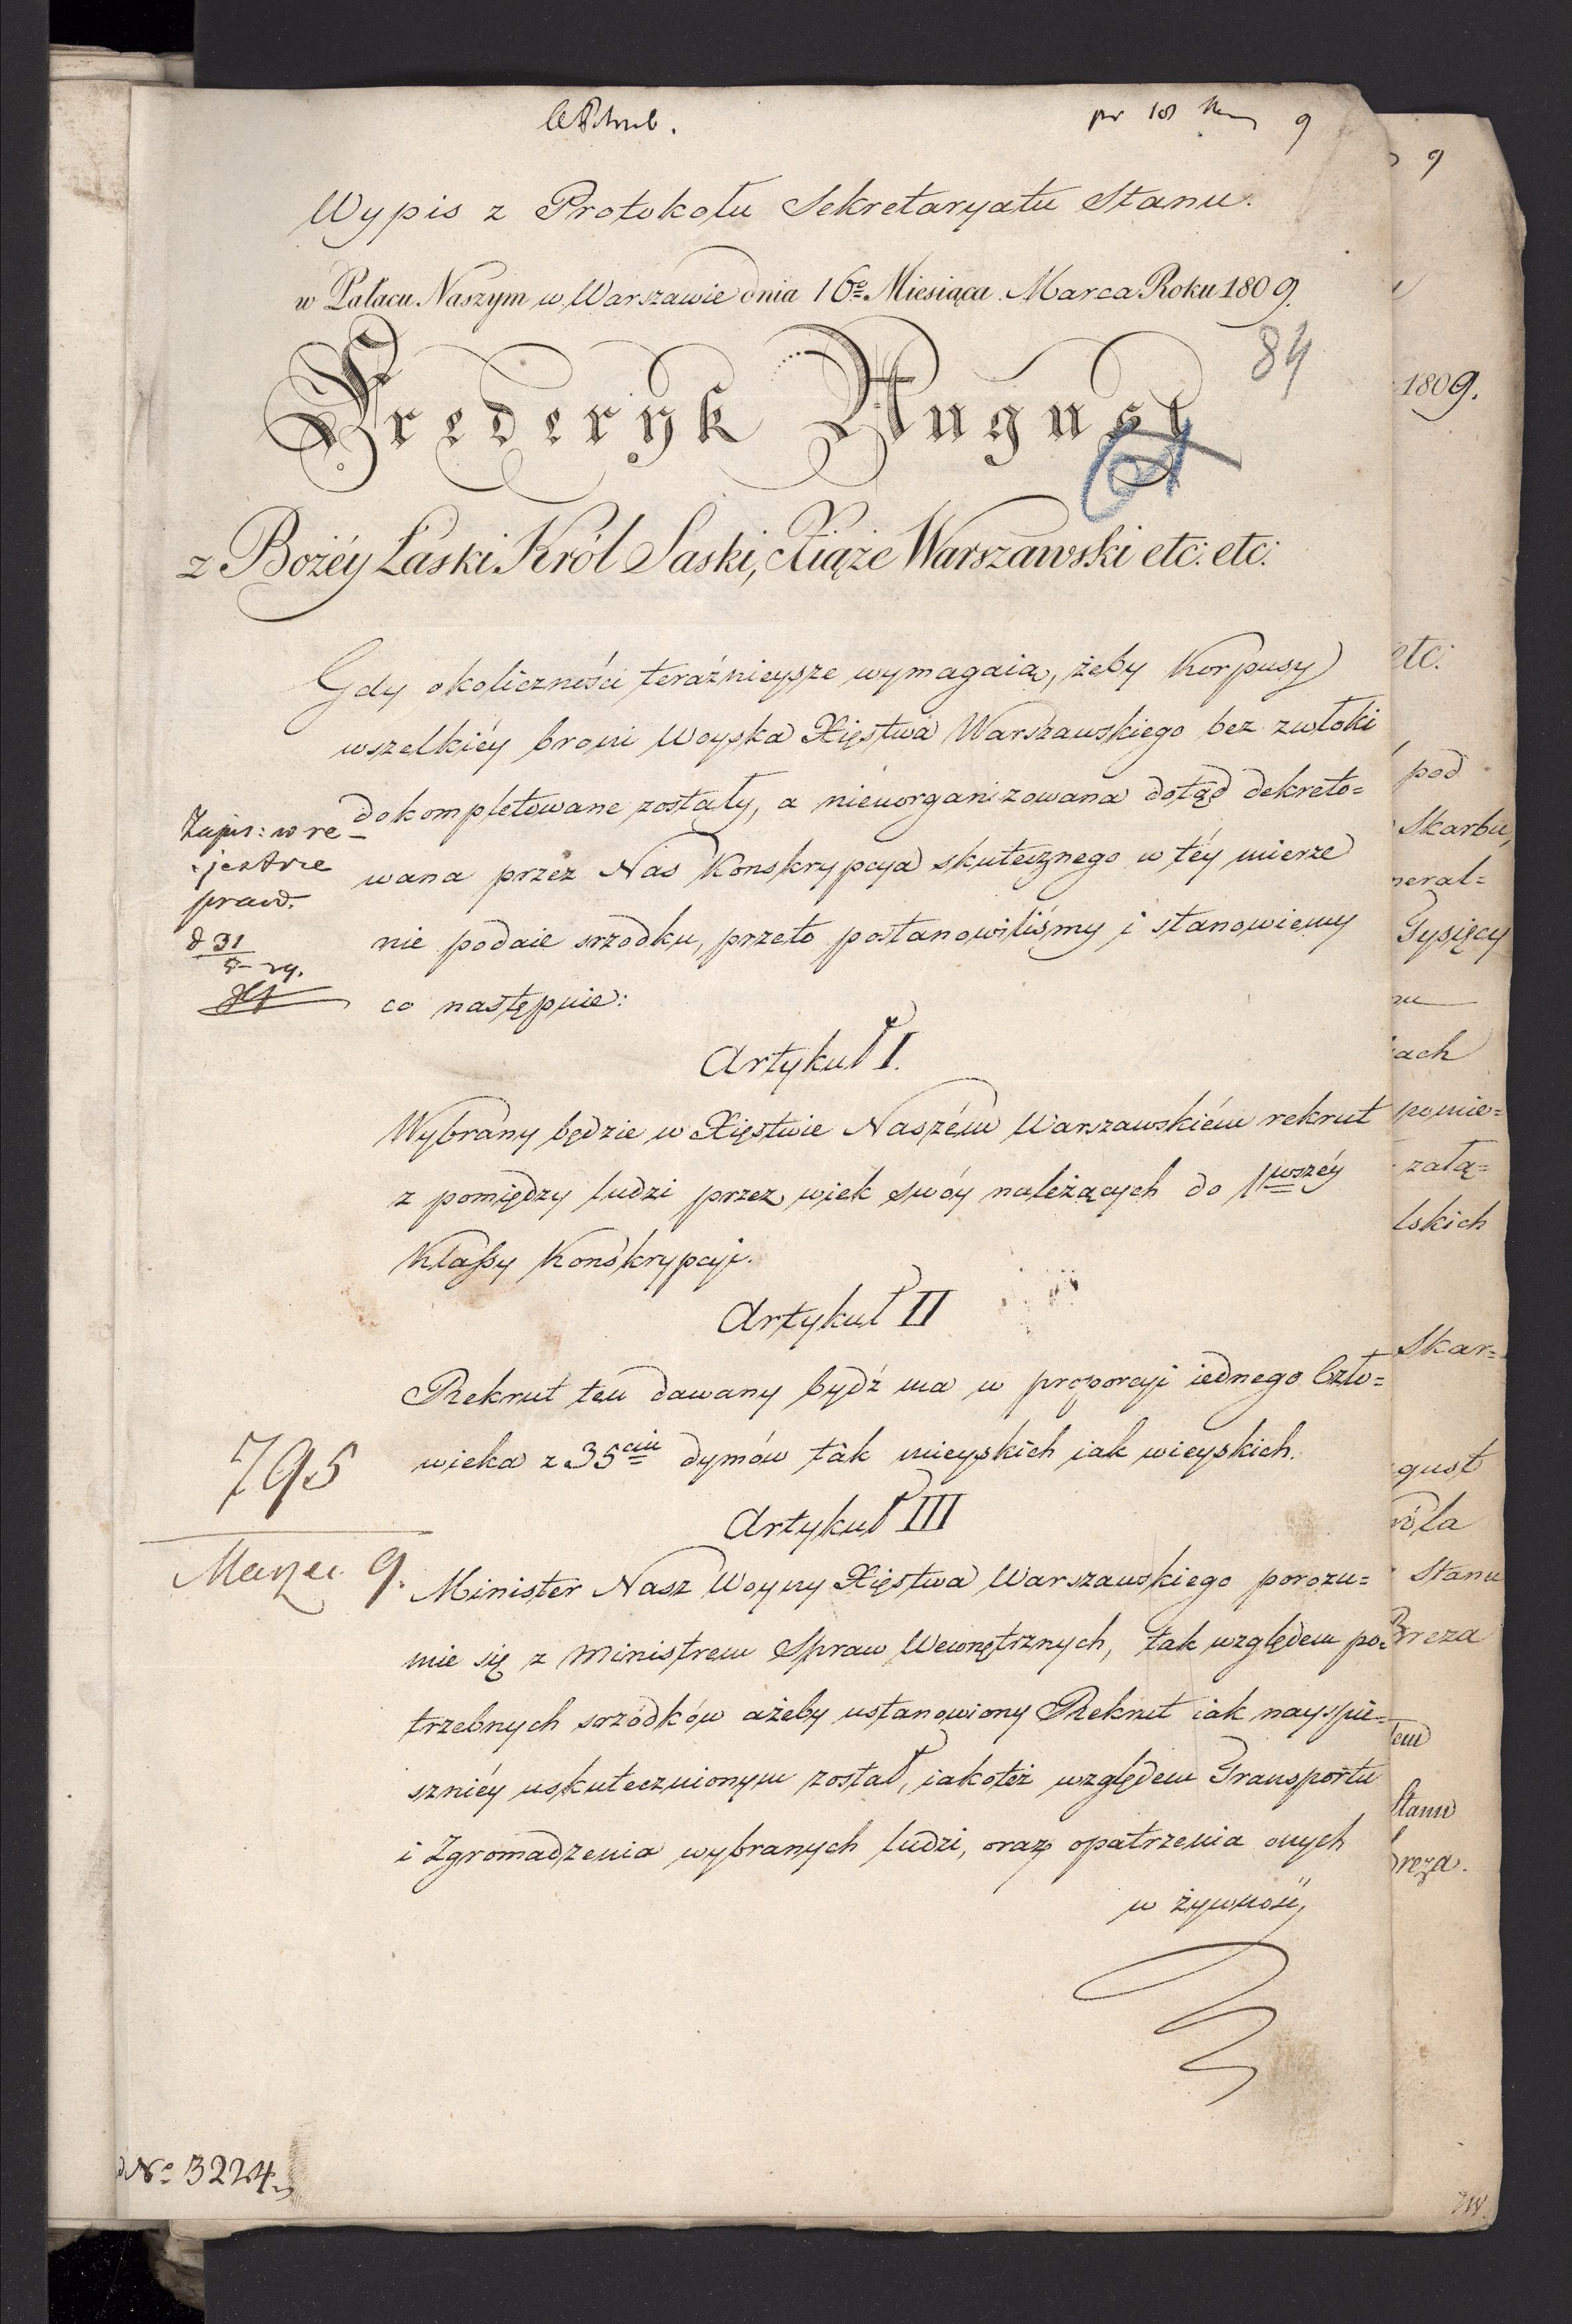 9
Wypis z Protokołu Sekretaryatu Stanu.
w Pałacu Naszym w Warszawie dnia 16º Miesiąca Marca Roku 1809.
84
Fryderyk August
z Bożéy Łaski Król Saski, Xiąże Warszawski etc: etc:
Gdy okoliczności teráźnieysze wymagaią, żeby Korpusy
wszelkiéy broni Woyska Xięstwa Warszawskiego bez zwłoki
dokompletowane zostały, a nieuorganizowana dotąd dekreto=
wana przez Nas Konskrypcya skutecznego w téy mierze
nie podaie srzodku, przeto postanowiliśmy i stanowiemy
co następuie:
Zapis: w re-
jestrze
praw.
d 31
Artykuł I.
Wybrany będzie w Xięstwie Naszém Warszawskiém rekrut
z pomiędzy ludzi przez wiek swóy należących do 1wszéy
Klassy Konskrypcyi.
Artykuł II
Rekrut ten dawany bydź ma w proporcyi iednego Czło=
wieka z 35ciu dymów tak mieyskich iak wieyskich.
795
Marzec 9.
Artykuł III
Minister Nasz Woyny Xięstwa Warszawskiego porozu=
mie się z Ministrem Spraw Wewnętrznych, tak względem po=
trzebnych srzódków ażeby ustanowiony Rekrut iak nayspie=
szniéy uskutecznionym został, iakoteż względem Transportu
i Zgromadzenia wybranych ludzi, oraz opatrzenia onych
w żywność,
Nº 3224
9
1809.
etc:
pod
Skarbu,
neral=
Tysięcy
ach
pomie=
załą=
lskich
Skar=
gust
róla
Stanu
Breza
tem
Stanu
Breza.